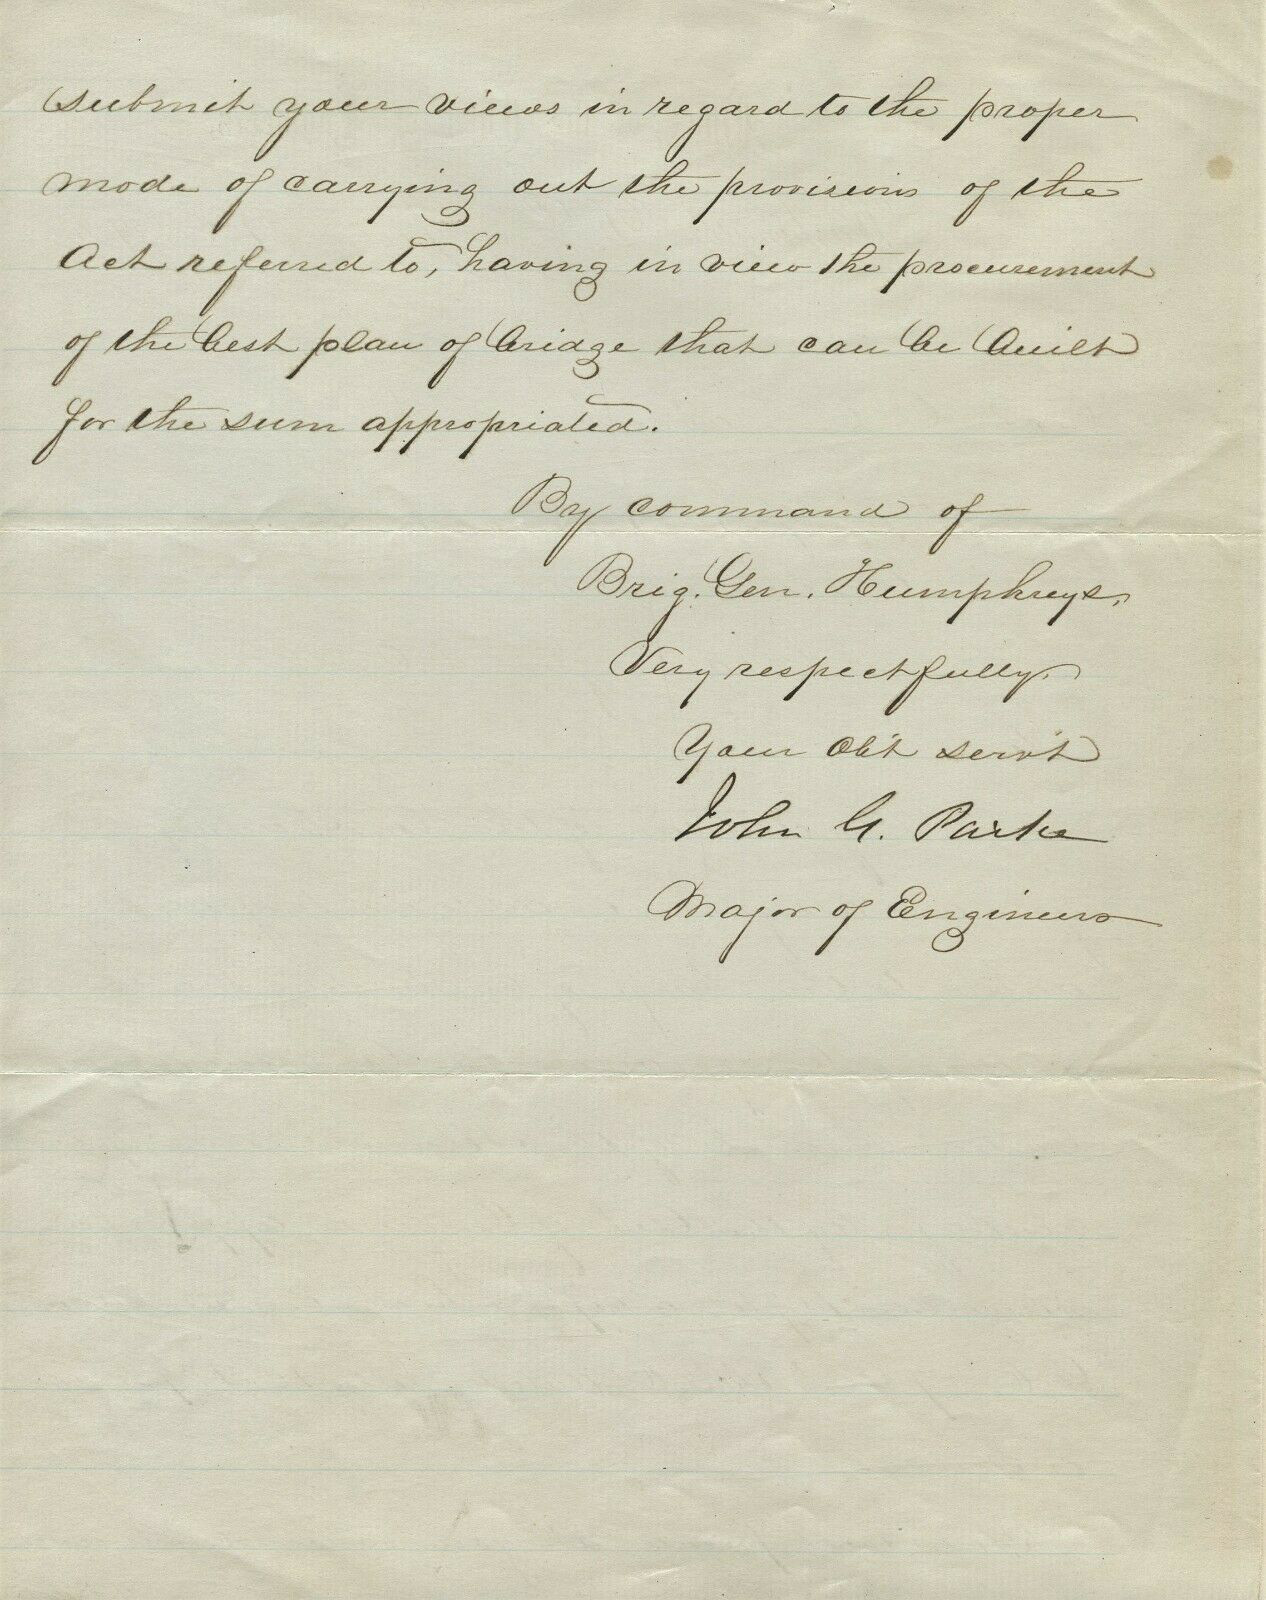 submit your views in regard to the proper
mode of carrying out the provisions of the
Act referred to, having in view the procurement
of the best plan of bridge that can be built
for the sum appropriated.
By command of
Brig. Gen. Humphreys,
Very respectfully
Your Obt servt
John G. Parke
Major of Engineers